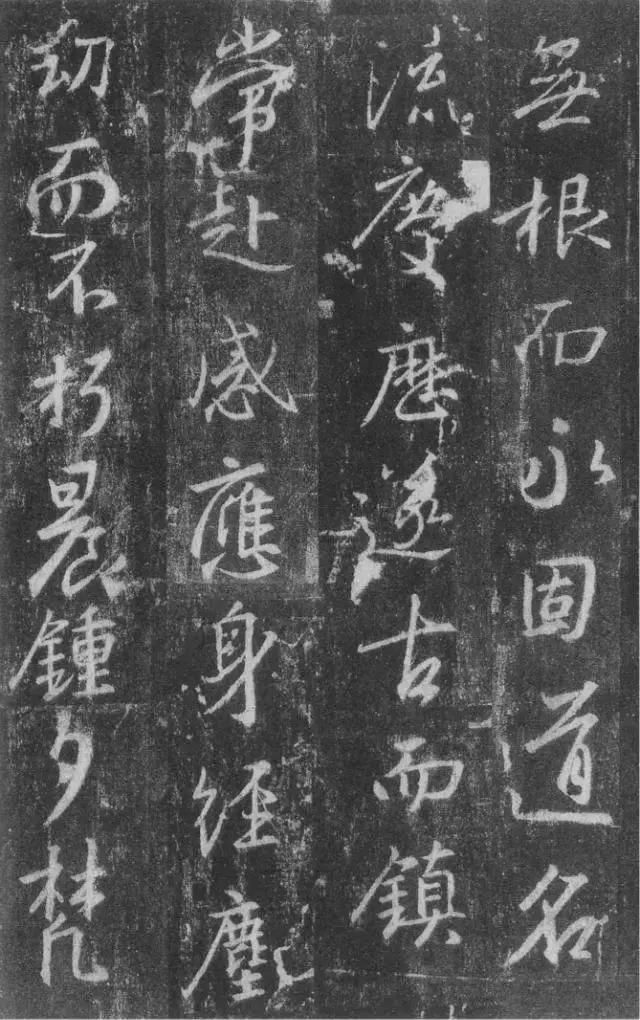 無根而永固道名
流慶歷遂古而鎮
常赴感應身經塵
劫而不朽晨鍾夕梵